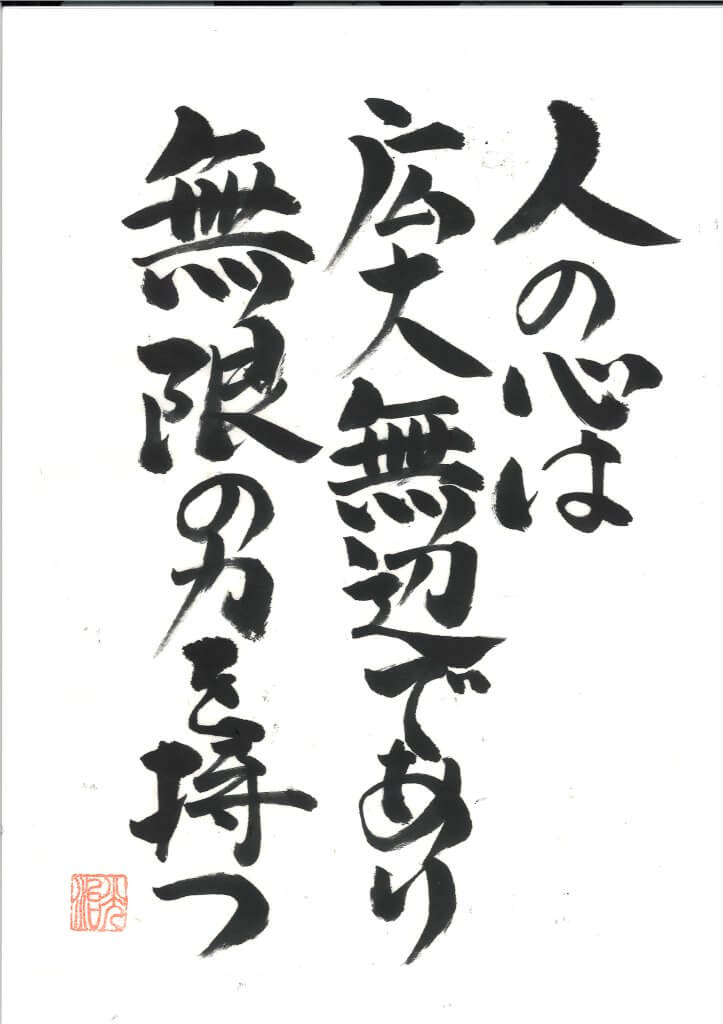 人の心は
広大無辺であり
無限の力を持つ